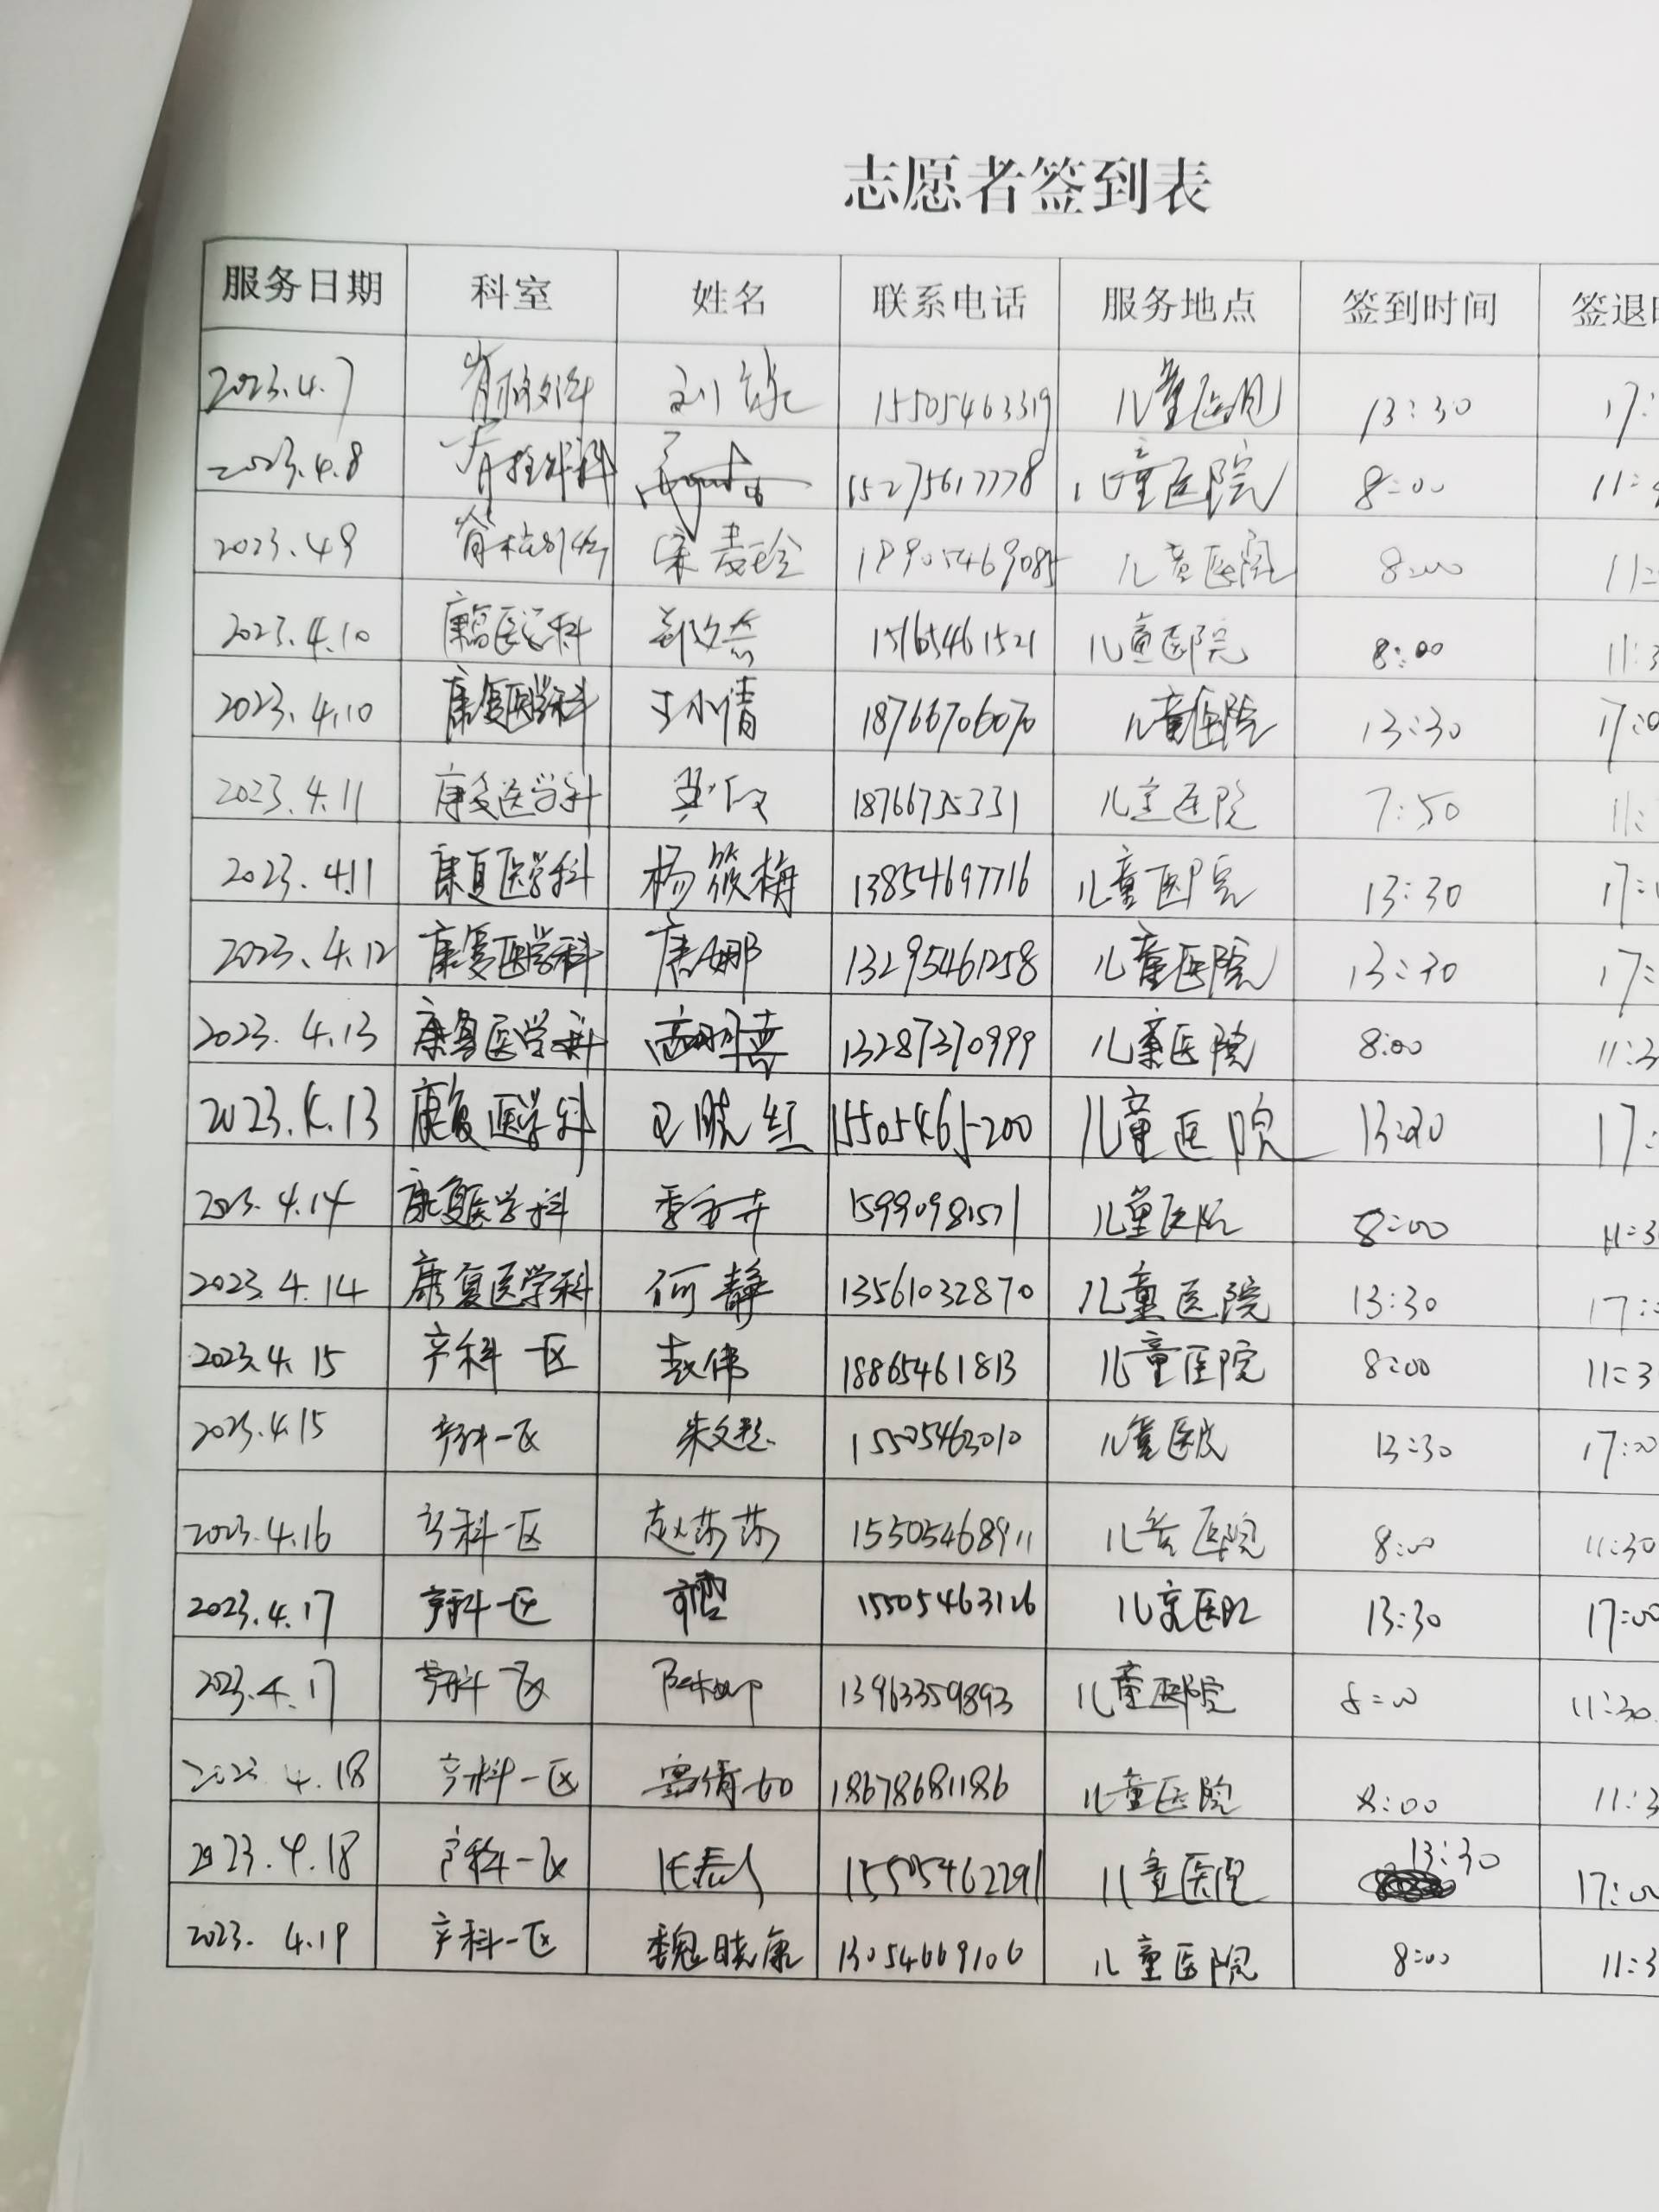 志愿者签到表
服务日期 科室 姓名 联系电话 服务地点 签到时间 签退
2023.4.7 脊柱外科 刘 15505463319 儿童医院 13:30 17:
2023.4.8 脊柱外科 15275617778 儿童医院 8:00 11:
2023.4.9 脊柱外科 宋麦玲 儿童医院 8:00 11:
2023.4.10 康复医学科 15165461521 儿童医院 8:00 11:3
2023.4.10 康复医学科 王小倩 18766706070 儿童医院 13:30 17:0
2023.4.11 康复医学科 儿童医院 7:50 11:
2023.4.11 康复医学科 杨筱梅 13854697716 儿童医院 13:30 17:
2023.4.12 康复医学科 唐娜 13295461258 儿童医院 13:30 17:
2023.4.13 康复医学科 13287370999 儿童医院 8:00 11:3
2023.4.13 康复医学科 王晓红 15505465200 儿童医院 13:30 17:
2023.4.14 康复医学科 15990981571 儿童医院 8:00 11:3
2023.4.14 康复医学科 何静 13561032870 儿童医院 13:30 17:
2023.4.15 产科一区 赵伟 18865461813 儿童医院 8:00 11:3
2023.4.15 产科一区 朱文 15505463010 儿童医院 13:30 17:00
2023.4.16 产科一区 赵莎莎 15505468911 儿童医院 8:00 11:30
2023.4.17 产科一区 15505463126 儿童医院 13:30 17:00
2023.4.17 产科一区 13963359893 儿童医院 8:00 11:30
2023.4.18 产科一区 18678681186 儿童医院 8:00 11:3
2023.4.18 产科一区 15505462291 儿童医院 13:30 17:00
2023.4.19 产科一区 魏晓康 13054669106 儿童医院 8:00 11:3